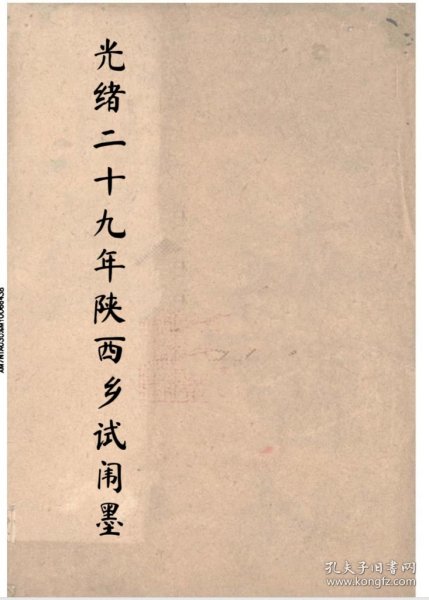 光绪二十九年陕西乡试闱墨
孔夫子旧书网
www.kongfz.com